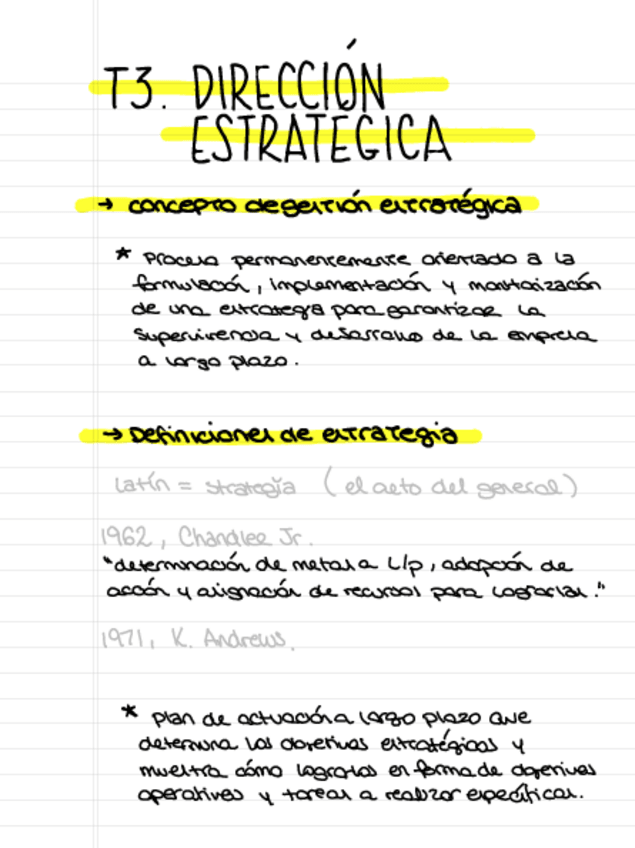 T3. DIRECCIÓN
ESTRATEGICA
→ concepto de gestión estratégica
* Proceso permanentemente orientado a la
formulación, implementación y monitorización
de una estrategia para garantizar la
supervivencia y desarrollo de la empresa
a largo plazo.
→ Definiciones de estrategia
latín = strategĭa (el acto del general)
1962, Chandlee Jr.
"determinación de metas a L/p, adopción de
acción y asignación de recursos para lograrlas."
1971, K. Andrews.
* Plan de actuación a largo plazo que
determina los objetivos estratégicos y
muestra cómo lograrlos en forma de objetivos
operativos y tareas a realizar específicas.